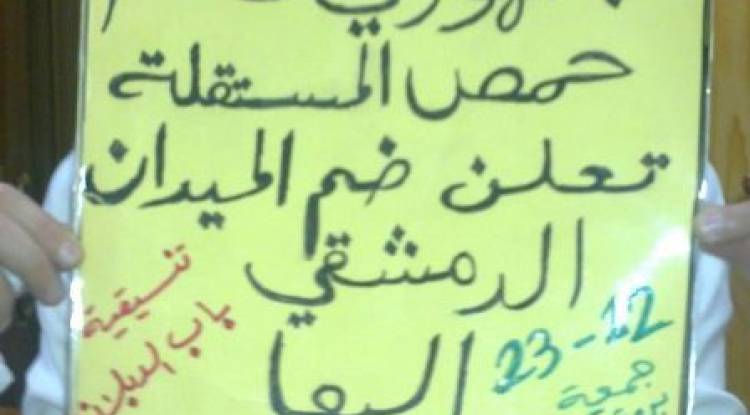 حمص المستقلة
تعلن ضم الميدان
الدمشقي
إليها
تنسيقية
باب
23-12
جمعة